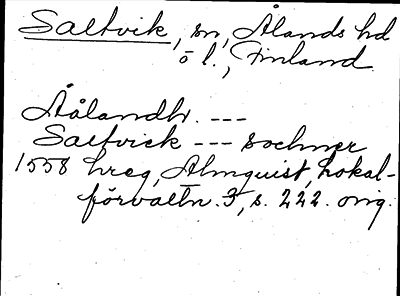 Saltvik, sn, Ålands hd
o l., Finland.
Åålandhr. ---
Saltvick --- sochner
1558 hreg, Almquist, Lokal-
förvaltn. 3, s. 222. orig.